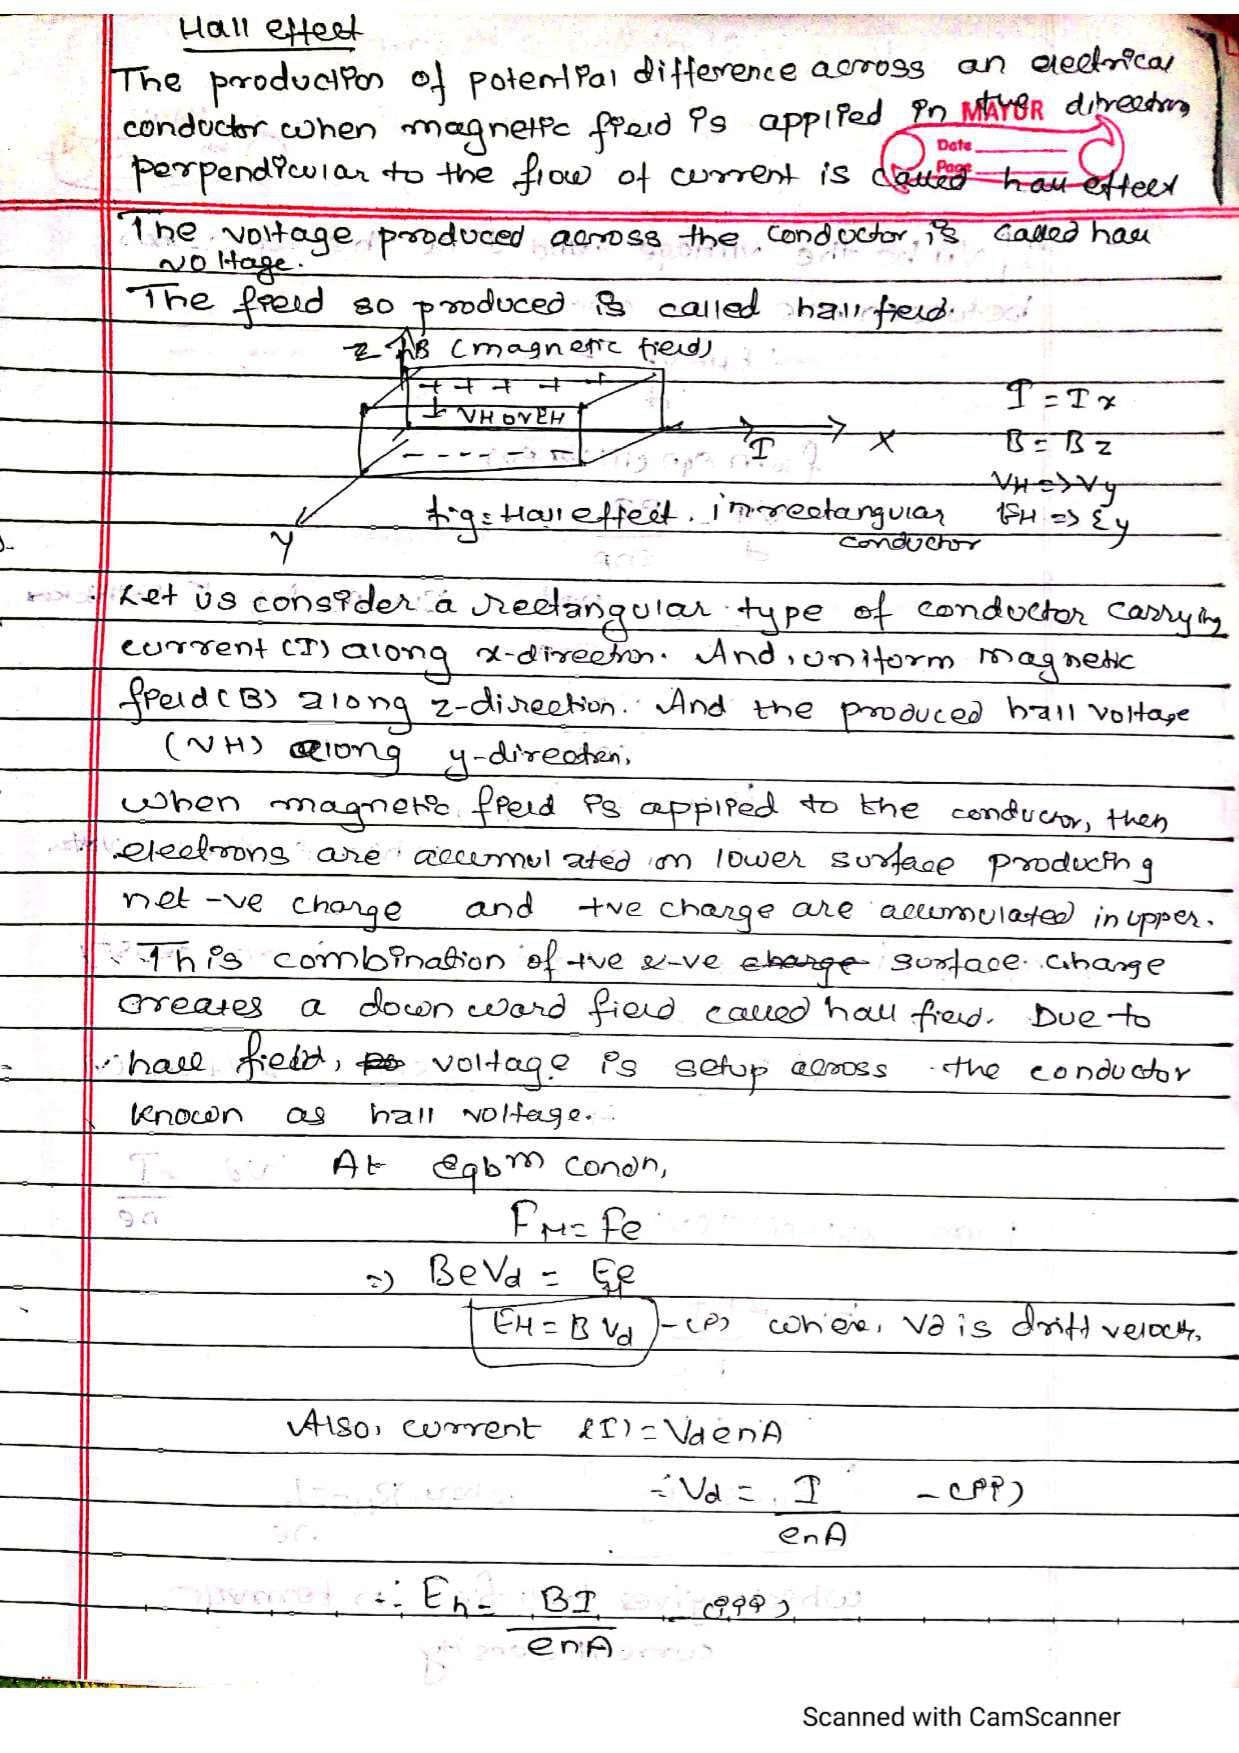 Hall effect
The production of potential difference across an electrical
conductor when magnetic field is applied in the direction
MAYUR
Date
Page
perpendicular to the flow of current is called hall effect
The voltage produced across the conductor is called hall
voltage.
The field so produced is called hall field.
Z B (magnetic field)
+ + + + +
VH or EH
- - - - - -
I
X
Y
I = Ix
B = Bz
VH => Vy
EH => Ey
fig: Hall effect in rectangular
conductor
Let us consider a rectangular type of conductor carrying
current (I) along x-direction. And, uniform magnetic
field (B) along z-direction. And the produced hall voltage
(VH) along y-direction.
when magnetic field is applied to the conductor, then
electrons are accumulated on lower surface producing
net -ve charge and +ve charge are accumulated in upper.
This combination of +ve & -ve charge surface charge
creates a downward field called hall field. Due to
hall field, voltage is setup across the conductor
known as hall voltage.
At eqbm condn,
FM = Fe
=> BeVd = EHe
EH = B Vd -(i) where, Vd is drift velocity.
Also, current (I) = VdenA
∴ Vd = I / enA -(ii)
∴ Eh = BI / enA -(iii)
Scanned with CamScanner